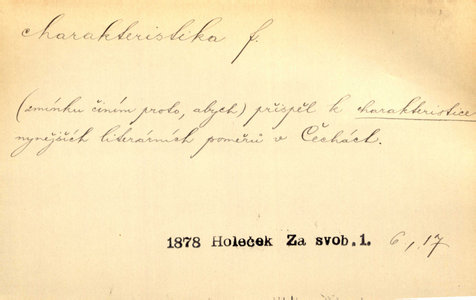 charakteristika f.
(zmínku činím proto, abych) přispěl k charakteristice
nynějších literárních poměrů v Čechách.
1878 Holeček Za svob. 1. 6, 17